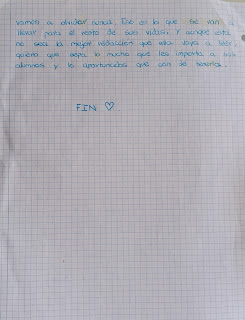 vamos a olvidar nunca. Eso es lo que se van a
llevar para el resto de sus vidas. Y aunque esta
no sea la mejor redacción que ella vaya a leer,
quiero que sepa lo mucho que les importa a sus
alumnos y lo afortunados que son de tenerla.
FIN ♡